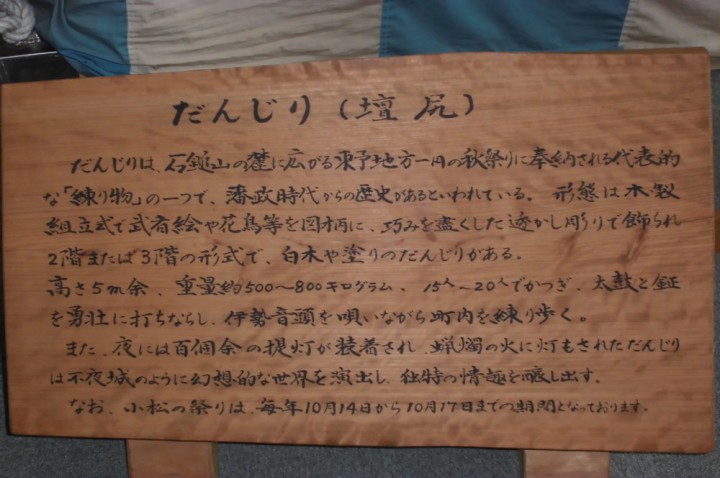 だんじり(壇尻)
だんじりは、石鎚山の麓に広がる東予地方一円の秋祭りに奉納される代表的
な「練り物」の一つで、藩政時代からの歴史があるといわれている。形態は木製
組立式で武者絵や花鳥等を図柄に、巧みを盡くした透かし彫りで飾られ
2階または3階の形式で、白木や塗りのだんじりがある。
高さ5m余、重量約500〜800キログラム、15人〜20人でかつぎ、太鼓と鉦
を勇壮に打ちならし、伊勢音頭を唄いながら町内を練り歩く。
また、夜には百個余の提灯が装着され、蝋燭の火に灯もされただんじり
は不夜城のように幻想的な世界を演出し、独特の情趣を醸し出す。
なお、小松の祭りは、毎年10月14日から10月17日までの期間となっております。